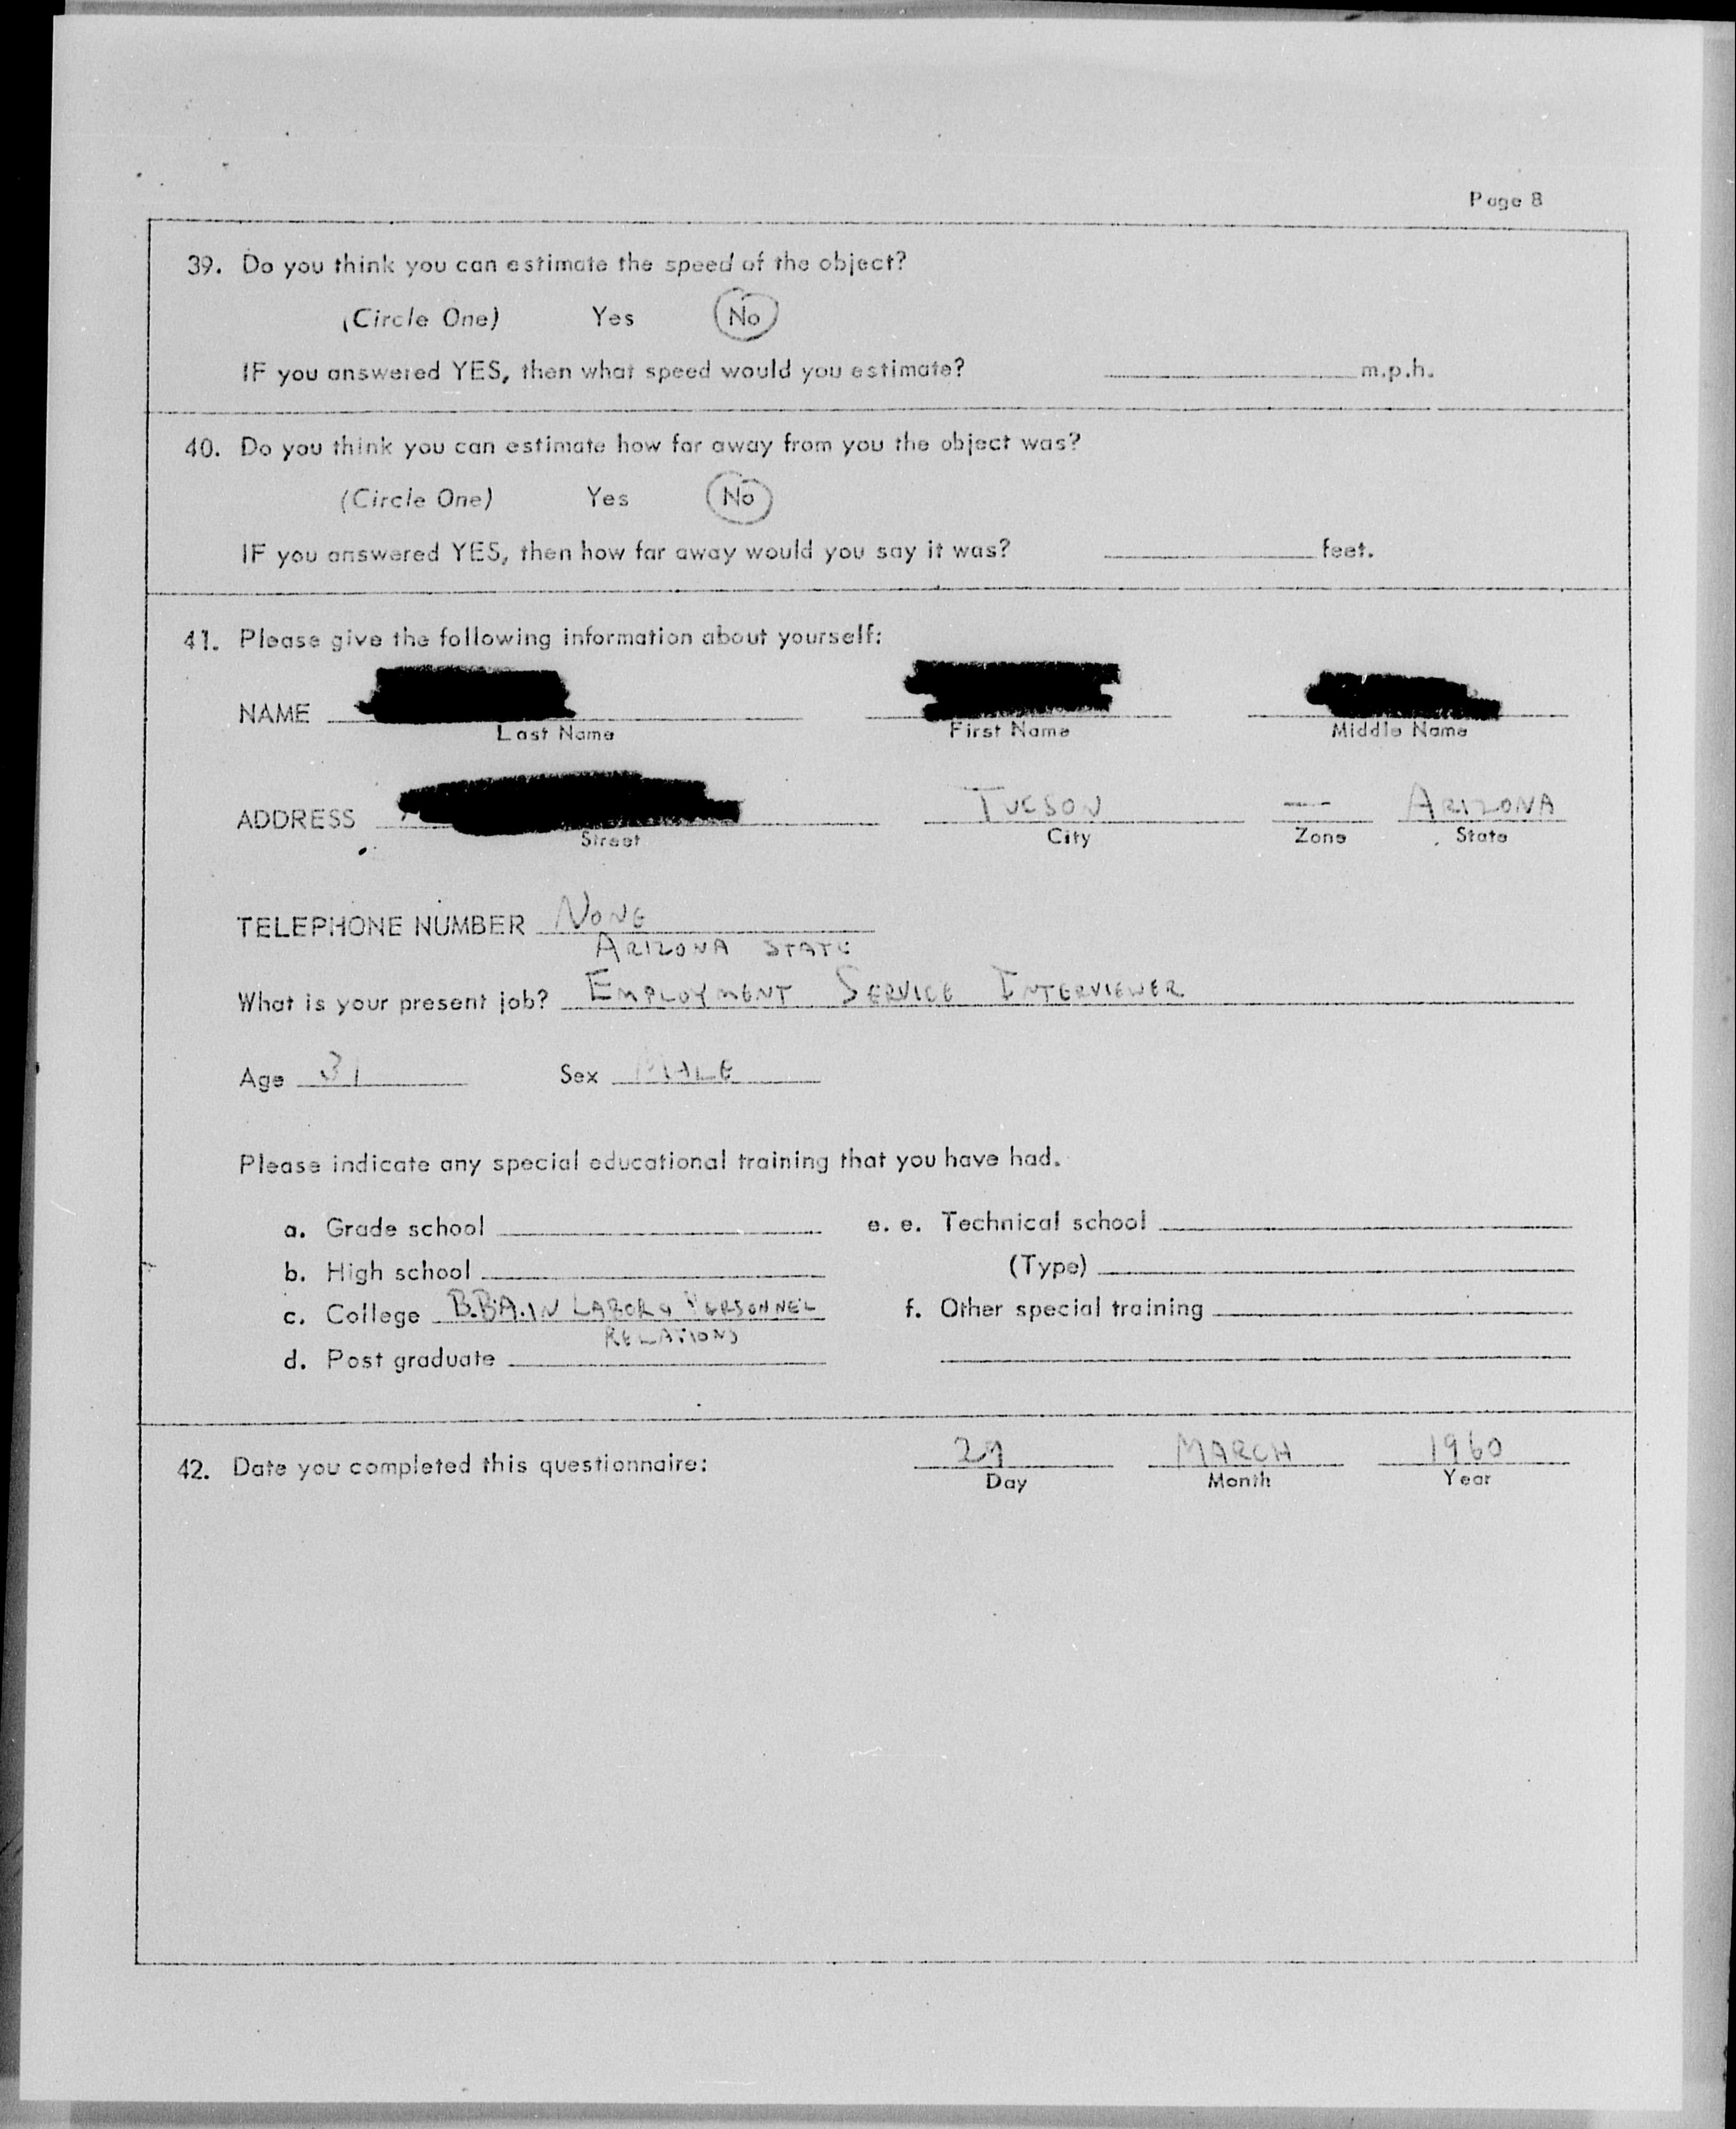 Page 8
39. Do you think you can estimate the speed of the object?
(Circle One) Yes No
IF you answered YES, then what speed would you estimate? m.p.h.
40. Do you think you can estimate how far away from you the object was?
(Circle One) Yes No
IF you answered YES, then how far away would you say it was? feet.
41. Please give the following information about yourself:
NAME
Last Name First Name Middle Name
ADDRESS TUCSON — ARIZONA
Street City Zone State
TELEPHONE NUMBER NONE
ARIZONA STATE
What is your present job? EMPLOYMENT SERVICE INTERVIEWER
Age 31 Sex MALE
Please indicate any special educational training that you have had.
a. Grade school e. e. Technical school
b. High school (Type)
c. College B.B.A. IN LABOR & PERSONNEL f. Other special training
RELATIONS
d. Post graduate
42. Date you completed this questionnaire: 29 MARCH 1960
Day Month Year